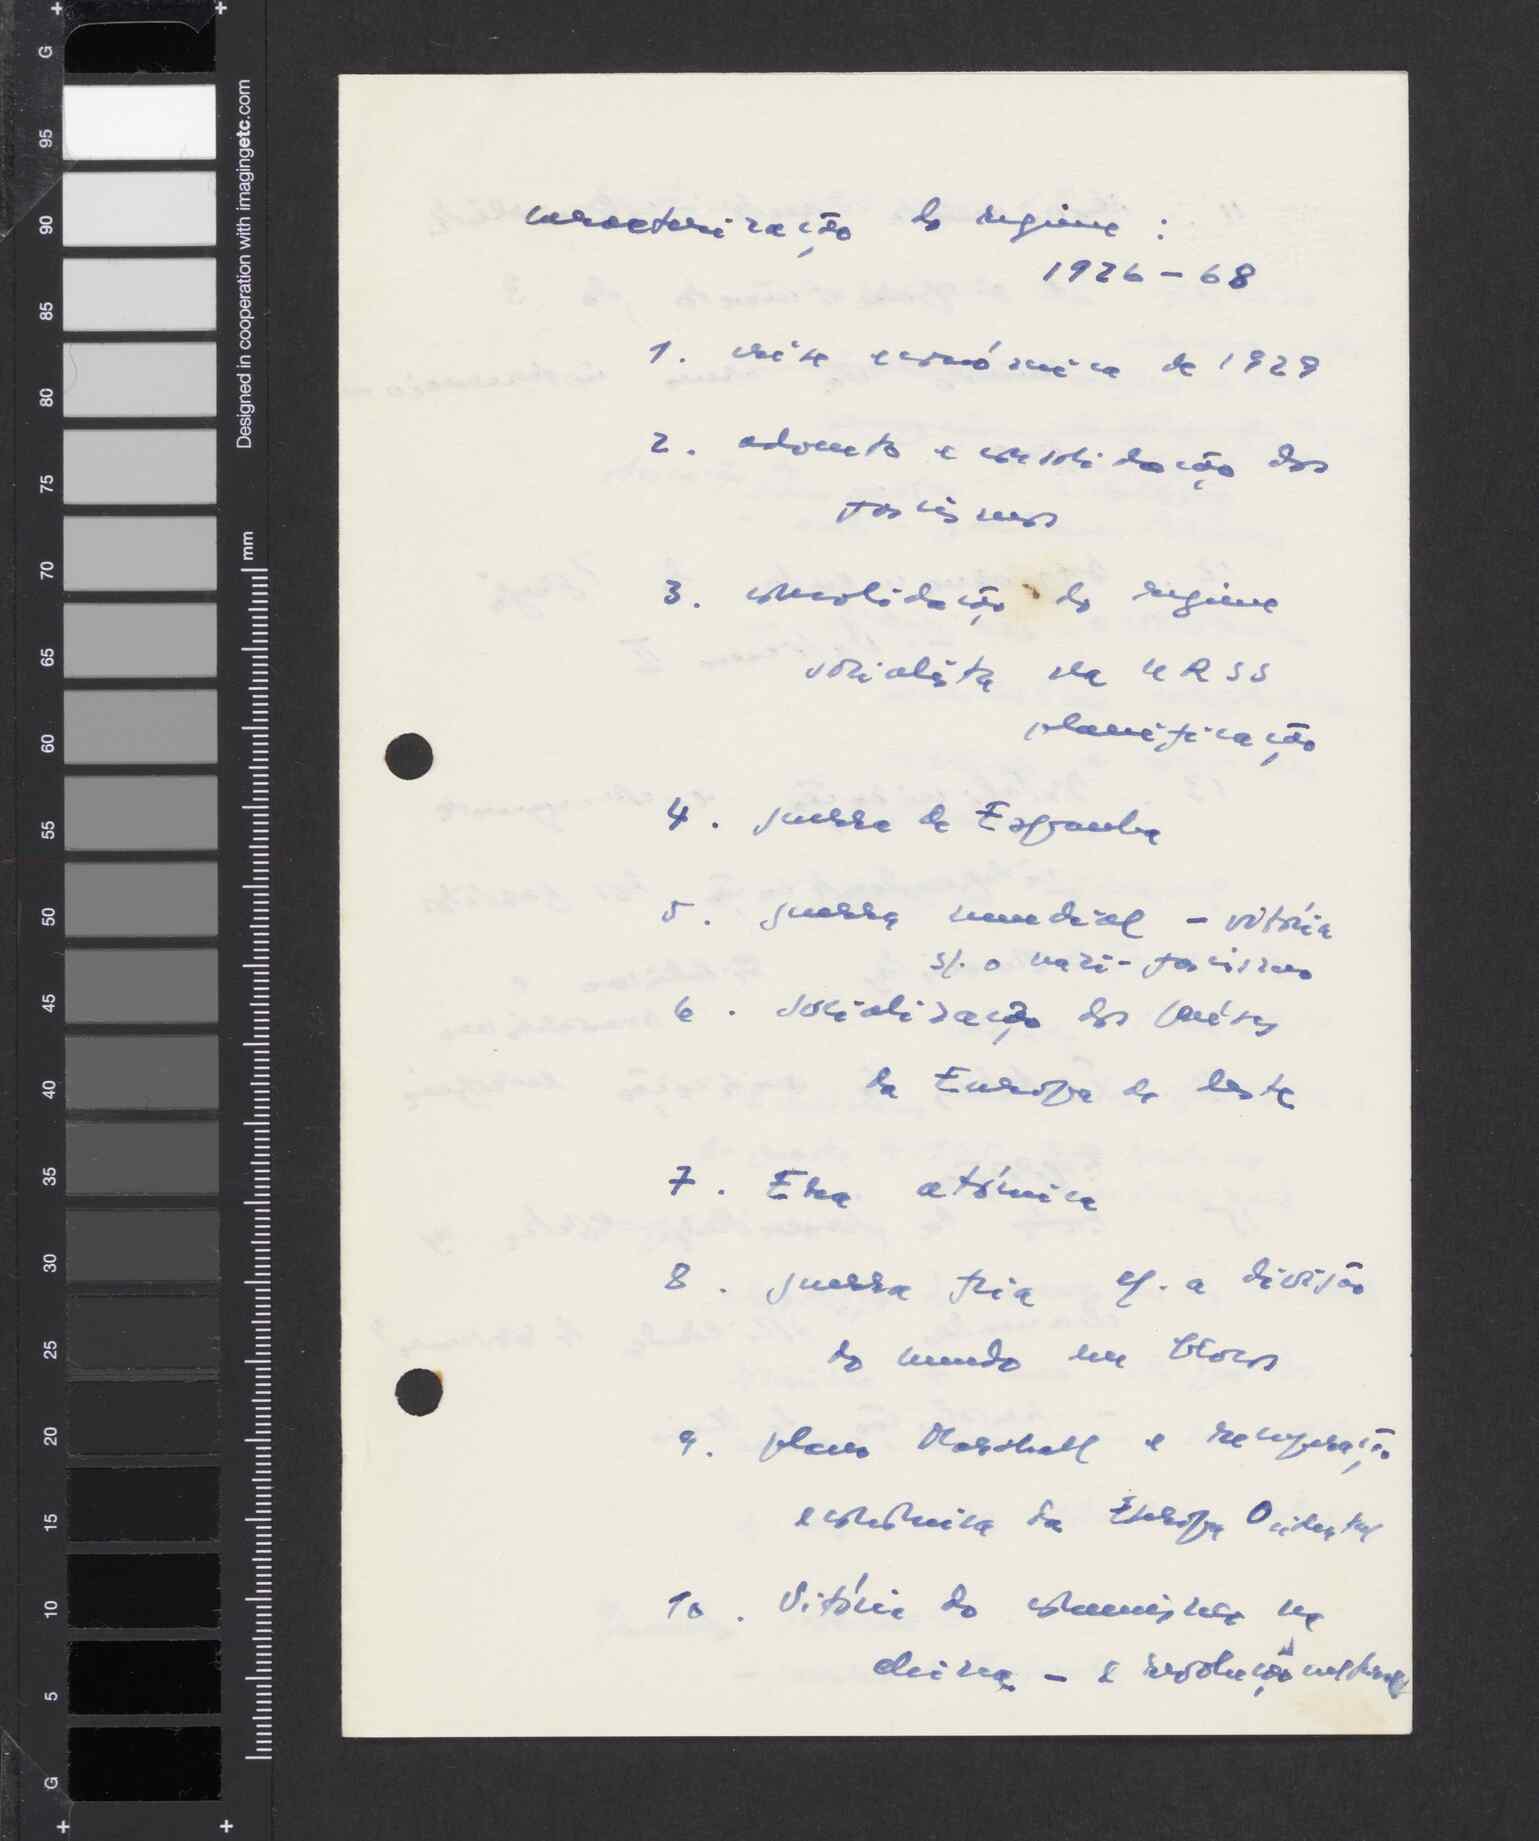 caracterização do regime :
1926 - 68
1. crise económica de 1929
2. advento e consolidação dos
fascismos
3. consolidação do regime
socialista na URSS
planificação
4. guerra de Espanha
5. guerra mundial - vitória
s/. o nazi-fascismo
6. socialização dos países
da Europa de leste
7. Era atómica
8. guerra fria c/. a divisão
do mundo em blocos
9. plano Marshall e recuperação
económica da Europa Ocidental
10. Vitória do comunismo na
china - e revolução cultural
G
95
90
85
80
75
70
65
60
55
50
45
40
35
30
25
20
15
10
5
G
Designed in cooperation with imagingetc.com
mm